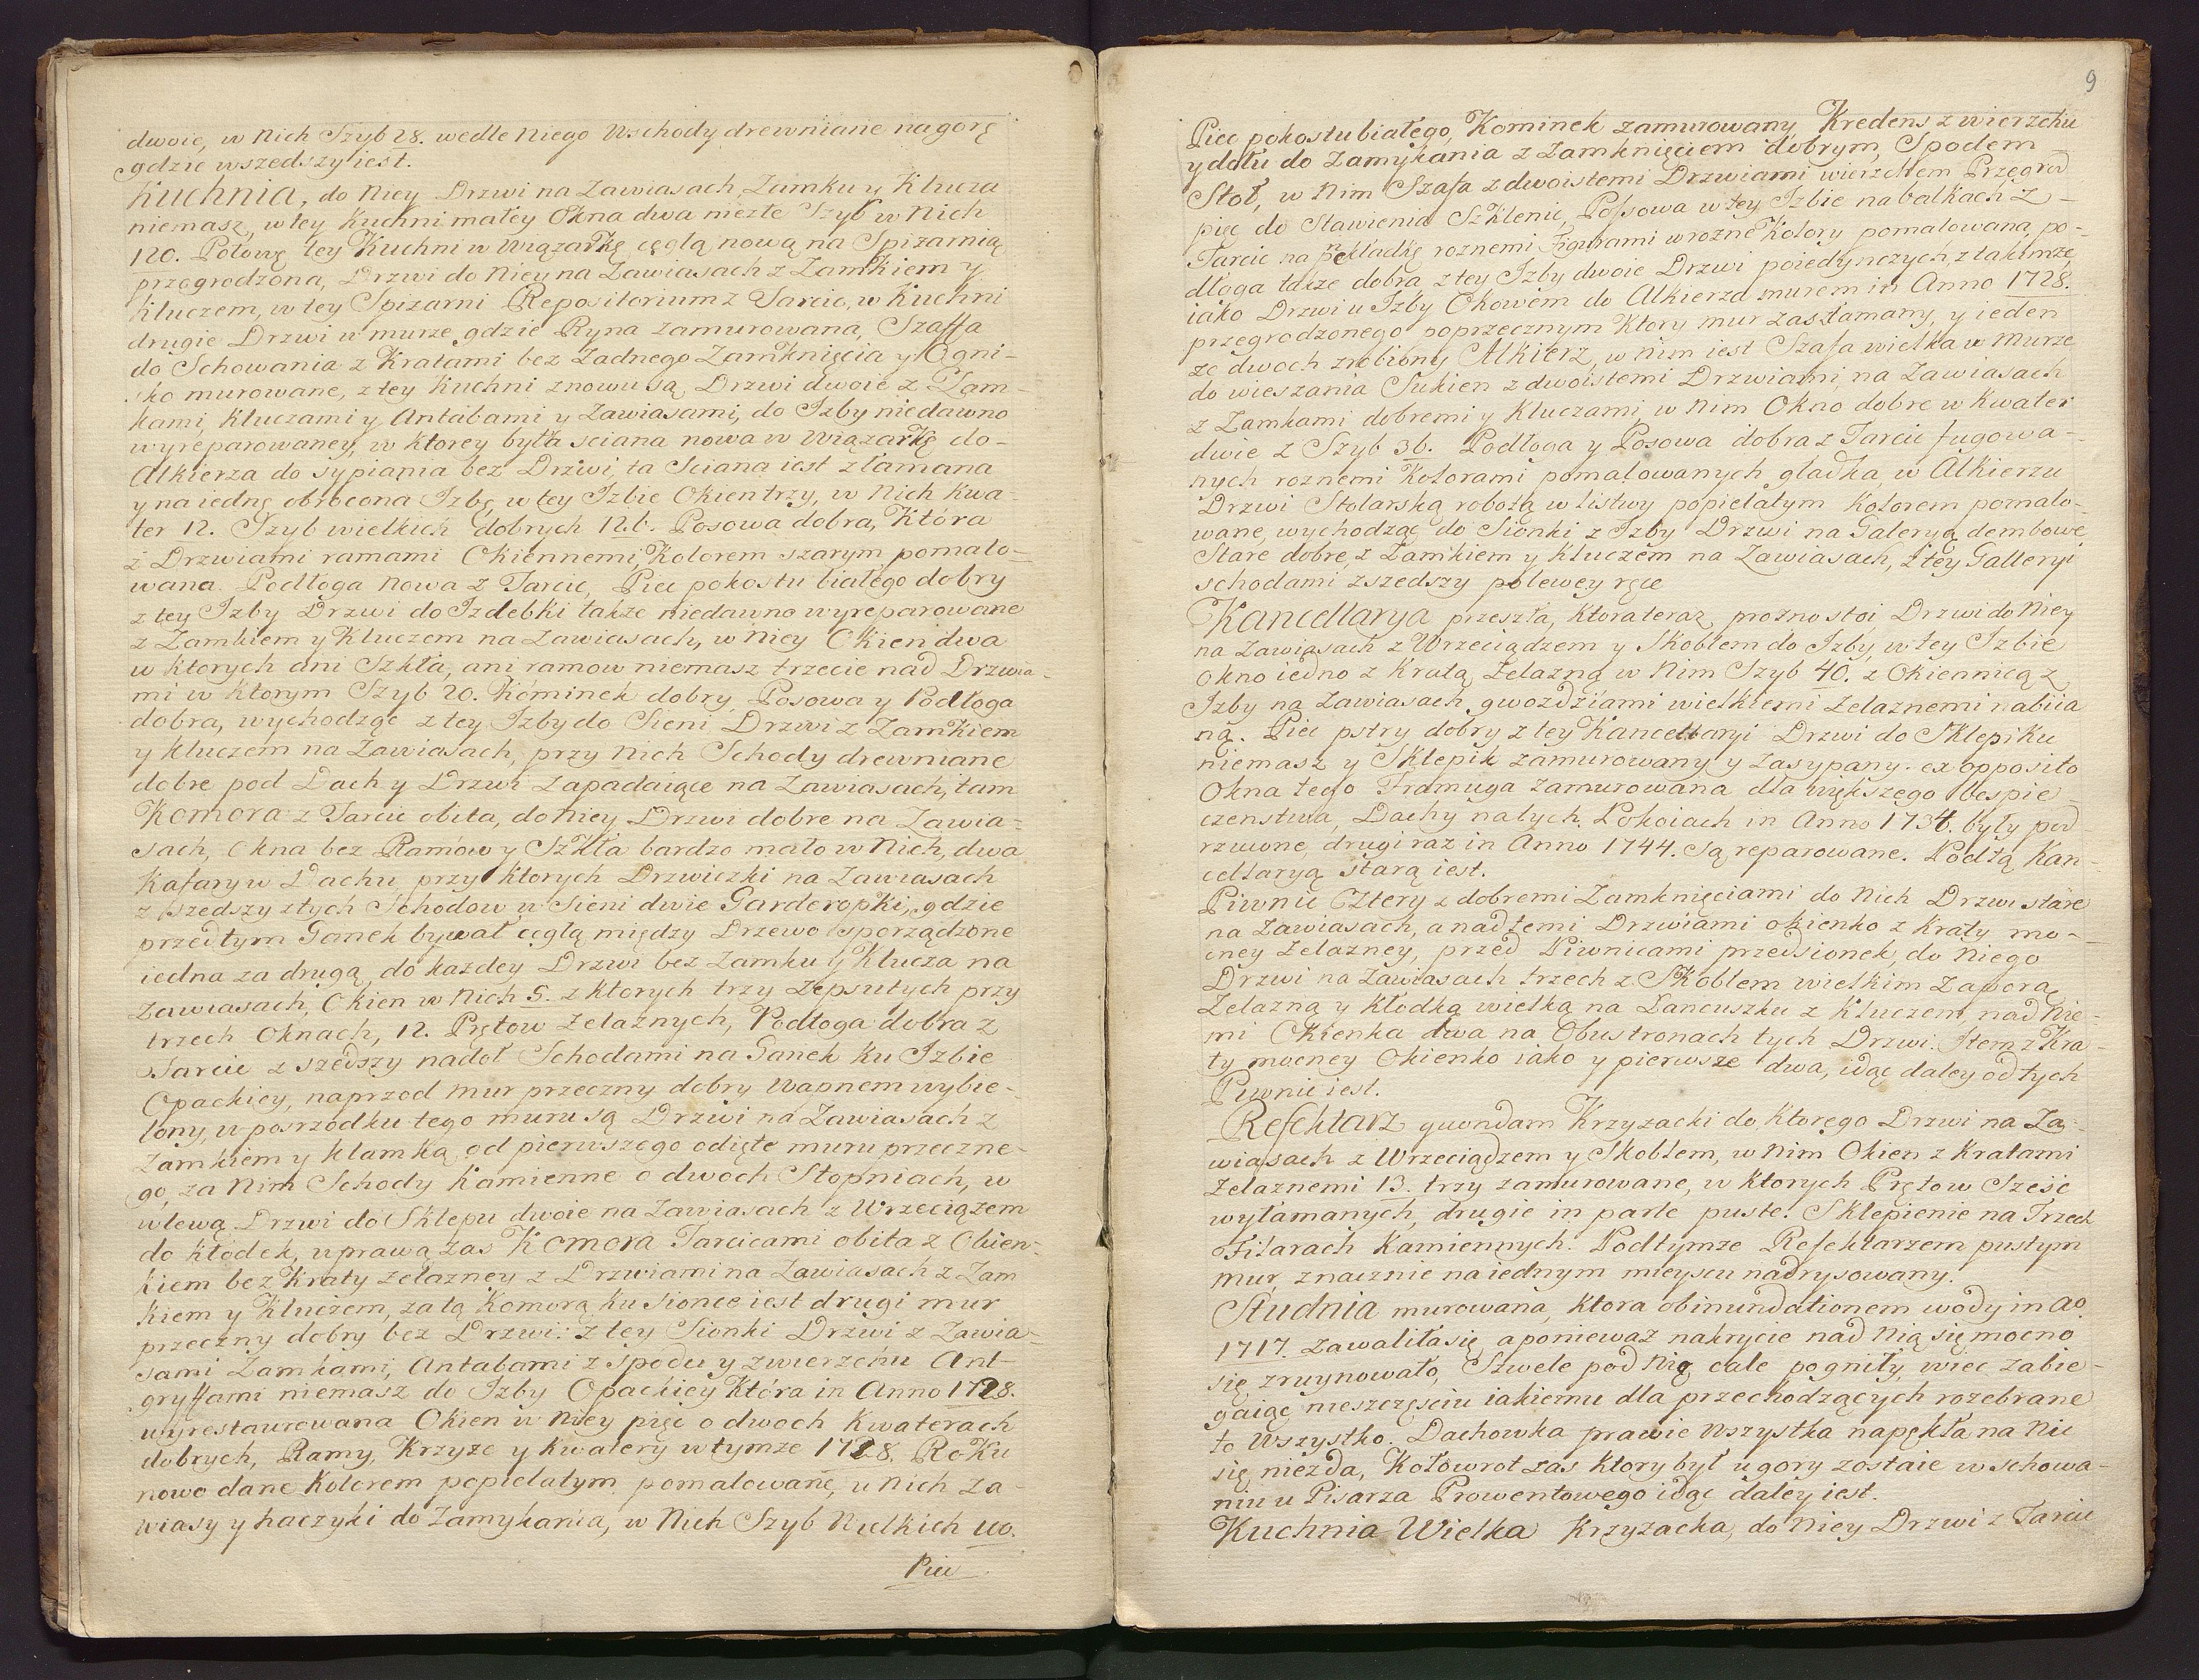 dwoie, w Nich Szyb 28. wedle Niego Wschody drewniane na gorę
gdzie wszedszy iest.
Kuchnia, do Niey Drzwi na Zawiasach, Zamku y Klucza
niemasz, w tey Kuchni małey Okna dwa niezłe Szyb w Nich
120. Połowę tey Kuchni w Wiązarkę cęgłą nową na Spizarnią
przegrodzona, Drzwi do Niey na Zawiasach z Zamkiem y
Kluczem, w tey Spizarni Repositorium z Tarcic, w Kuchni
drugie Drzwi w murze, gdzie Ryna zamurowana, Szaffa
do Schowania z Kratami bez Zadnego Zamknięcia y Ogni-
sko murowane, z tey Kuchni znowu są Drzwi dwoie z Zam-
kami, Kluczami y Antabami y Zawiasami, do Izby niedawno
wyreparowaney, w ktorey była sciana nowa w Wiązarkę do-
Alkierza do sypiania bez Drzwi, ta Sciana iest złamana
y na iednę obrocona Izbę, w tey Izbie Okien trzy, w Nich Kwa-
ter 12. Szyb wielkich dobrych 126. Posowa dobra, Która
z Drzwiami ramami Okiennemi, Kolorem szarym pomalo-
wana. Podłoga Nowa z Tarcic, Piec pokostu białego dobry
z tey Izby Drzwi do Izdebki także niedawno wyreparowane
z Zamkiem y Kluczem na Zawiasach, w Niey Okien dwa
w ktorych ani Szkła, ani ramow niemasz trzecie nad Drzwia-
mi w Ktorym Szyb 20. Kóminek dobry, Posowa y Podłoga
dobra, wychodząc z tey Izby do Sieni Drzwi z Zamkiem
y kluczem na Zawiasach, przy Nich Schody drewniane
dobre pod Dach y Drzwi Zapadaiące na Zawiasach, tam
Komora z Tarcic obita, do Niey Drzwi dobre na Zawia-
sach, Okna bez Ramów y Szkła bardzo mało w Nich, dwa
Kafary w Dachu, przy ktorych Drzwiczki na Zawiasach
z szedszy z tych Schodow w Sieni dwie Garderopki, gdzie
przedtym Ganek bywał cęgłą między Drzewo sporządzone
iedna za drugą, do każdey Drzwi bez Zamku y Klucza na
Zawiasach, Okien w Nich 5. z ktorych trzy Zepsutych przy
trzech Oknach, 12. Prętow Żelaznych, Podłoga dobra z
Tarcic z szedszy nadoł Schodami na Ganek ku Izbie
Opackiey, naprzod mur przeczny dobry Wapnem wybie-
lony, w posrzodku tego muru są Drzwi na Zawiasach z
Zamkiem y klamką, od pierwszego odięte muru przeczne-
go, za Nim Schody Kamienne o dwoch Stopniach, w
w lewą Drzwi do Sklepu dwoie na Zawiasach z Wrzeciązem
do kłodek, w prawą zas Komora Tarcicami obita z Okien-
kiem bez Kraty Żelazney z Drzwiami na Zawiasach z Zam
kiem y Kluczem, za tą Komorą ku sionce iest drugi mur
przeczny dobry bez Drzwi: z tey Sionki Drzwi z Zawia-
sami Zamkami, Antabami z spodu y zwierzchu Ant-
gryffami niemasz do Izby Opackiey Która in Anno 1728.
wyrestaurowana Okien w Niey pięc o dwoch Kwaterach
dobrych, Ramy, Krzyze y kwatery w tymze 1728. Roku
nowo dane Kolorem popielatym pomalowane, w Nich Za-
wiasy y haczyki do Zamykania, w Nich Szyb Wielkich 100.
Piec
9
Piec pokostu białego, Kominek zamurowany, Kredens z wierzchu
y dołu do Zamykania z Zamknięciem dobrym, Spodem
Stoł, w Nim Szafa z dwoistemi Drzwiami wierzchem Przegrod
pięc do Stawienia Szklenic, Possowa w tey Izbie na balkach z
Tarcic na nakładkę roznemi Figurami w rozne Kolory pomalowana, po-
dłoga także dobra z tey Izby dwoie Drzwi poiedynczych, z takimze,
iako Drzwi u Izby Okowem do Alkierza murem in Anno 1728.
przegrodzonego poprzecznym Ktory mur zas złamany, y ieden
ze dwoch zrobiony Alkierz, w Nim iest Szafa wielka w Murze
do wieszania Sukien z dwoistemi Drzwiami na Zawiasach
z Zamkami dobremi y Kluczami, w Nim Okno dobre w Kwater
dwie z Szyb 36. Podłoga y Posowa dobra z Tarcic fugowa-
nych roznemi Kolorami pomalowanych gładka, w Alkierzu
Drzwi Stolarską robotą w listwy popielatym kolorem pomalo-
wane, wychodząc do Sionki z Izby Drzwi na Galeryą dembowe,
Stare dobre, z Zamkiem y kluczem na Zawiasach, z tey Galleryi
schodami zszedszy po lewey ręce
Kancellarya przeszła, Ktora teraz prożno stoi Drzwi do Niey
na Zawiasach z Wrzeciądzem y Skoblem do Izby, w tey Izbie
Okno iedno z Kratą Żelazną w Nim Szyb 40. z Okiennicą z
Izby na Zawiasach gwozdziami wielkiemi Żelaznemi nabiia
ną. Piec pstry dobry z tey Kancellaryi Drzwi do Sklepiku
niemasz y Sklepik zamurowany y zasypany. ex opposito
Okna tego Framuga zamurowana dla większego bespie
czenstwa, Dachy na tych Pokoiach in Anno 1734. były pod-
rzucone, drugi raz in Anno 1744. są reparowane. Pod tą Kan-
cellaryą starą iest.
Piwnic Cztery z dobremi Zamknięciami do Nich Drzwi stare
na Zawiasach, a nad temi Drzwiami okienko z kraty mo-
cney Żelazney, przed Piwnicami przedsionek, do Niego
Drzwi na Zawiasach trzech z Skoblem wielkim Zaporą
Żelazną y kłodką wielką na Lancuszku z Kluczem, nad Nie-
mi Okienka dwa na Obustronach tych Drzwi. Item z Kra-
ty mocney Okienko iako y pierwsze dwa, idąc daley od tych
Piwnic iest.
Refektarz quondam Krzyzacki do Ktorego Drzwi na Za-
wiasach z Wrzeciądzem y Skoblem, w Nim Okien z Kratami
Żelaznemi 13. trzy zamurowane, w Ktorych Prętow Szesc
wyłamanych, drugie in parte puste. Sklepienie na Trzech
Filarach Kamiennych. Podtymze Refektarzem pustym
mur, znacznie na iednym mieyscu nadrysowany.
Studnia murowana, ktora ob inundationem wody in Ao
1717. zawaliła się, a poniewaz nakrycie nad Nią się mocno
się zruynowało, Szwele pod Nią cale pogniły, wiec zabie-
gaiąc nieszczęsciu iakiemu dla przechodzących rozebrane
to Wszystko. Dachowka prawie Wszystka napękła na Nic
się niezda, Kołowrot zas Ktory był u gory zostaie w schowa-
niu u Pisarza Prowentowego idąc daley iest.
Kuchnia Wielka Krzyzacka, do Niey Drzwi z Tarcic